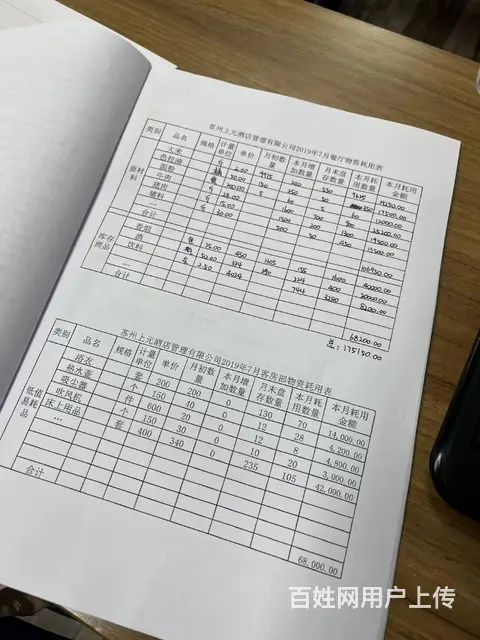 苏州上元酒店管理有限公司2019年7月餐厅物资耗用表
类别 品名 规格 计量单位 单价 月初数量 本月增加数量 月末盘存数量 本月耗用数量 本月耗用金额
原材料
大米 斤 2.00 9975 200 550 9625 19250.00
色拉油 17500.00
面粉 12000.00
牛肉 25200.00
猪肉 19500.00
辅料 13500.00
…
合计 106950.00
库存商品
香烟 包 25.00 450 1600 40000.00
酒 50.00 400 20000.00
饮料 2.50 3280 8200.00
…
合计 68200.00
总:175150.00
苏州上元酒店管理有限公司2019年7月客房部物资耗用表
类别 品名 规格 计量单位 单价 月初数量 本月增加数量 月末盘存数量 本月耗用数量 本月耗用金额
低值易耗品
浴衣 套 200 200 0 130 70 14,000.00
热水壶 个 150 40 0 12 28 4,200.00
吸尘器 件 600 20 0 12 8 4,800.00
吹风机 个 150 30 0 10 20 3,000.00
床上用品 套 400 340 0 235 105 42,000.00
…
合计 68,000.00
百姓网用户上传